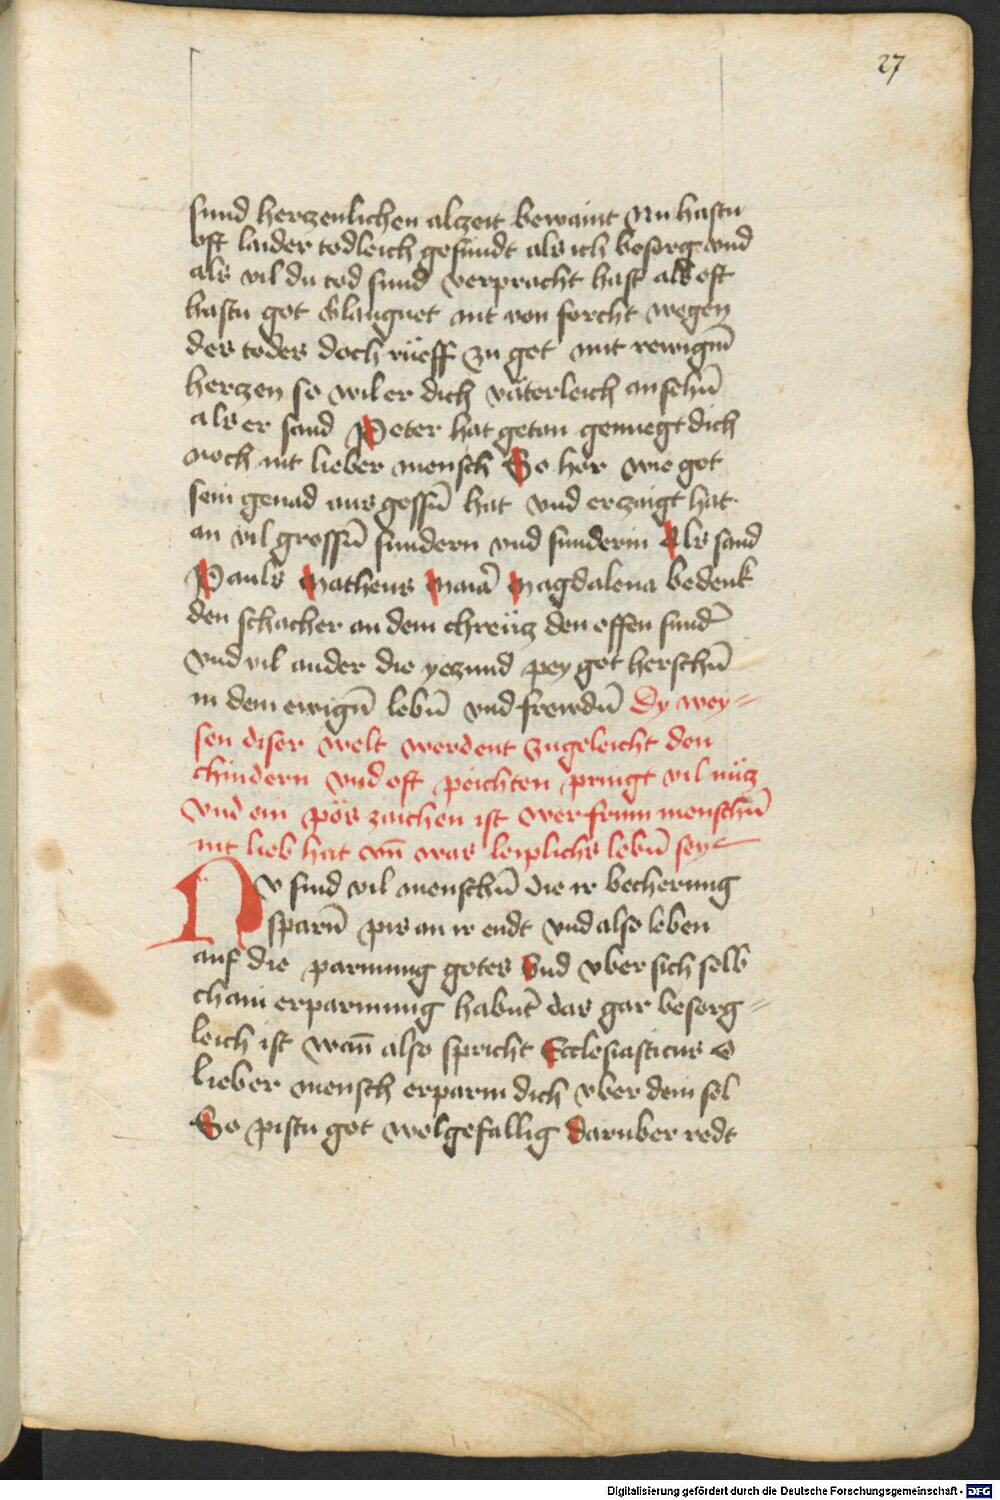 27
sund hertzenlichen alzeit bewaint Nu hastu
oft laider todleich gesundt als ich besorge vnd
als vil du tod sund verpracht hast als oft
hastu got v̄laugnet nit von forcht wegen
des todes doch rueff zu got mit rewigm̄
hertzen so wil er dich väterleich ansehn̄
als er sand Peter hat getan genuegt dich
noch nit lieber mensch So hör wie got
sein genad aus gossn̄ hat vnd erzaigt hat
an vil grossn̄ sundern vnd sunderin Als sand
Pauls Matheus Maria Magdalena bedenk
den schacher an dem chreütz den offen sund̄
Vnd vil ander die yezund pey got herschn̄
in dem ewign̄ lebn̄ vnd frewdn̄ Dy wey=
sen diser welt werdent zugeleicht den
chindern vnd oft peichten pringt vil nütz
Vnd ein pös zaichen ist wer frum menschn̄
nit lieb hat vn̄ was leiplichs lebn̄ sey
Nv sind vil menschn̄ die ir becherung
sparn̄ pis an ir endt vnd also leben
auf die parmung gotes Vnd vber sich selb
chain erparmung habnt̄ das gar besorg=
leich ist wan̄ also spricht Ecclesiasticus O
lieber mensch erparm dich vber dein sel
So pistu got wolgefallig darüber redt
Digitalisierung gefördert durch die Deutsche Forschungsgemeinschaft - DFG